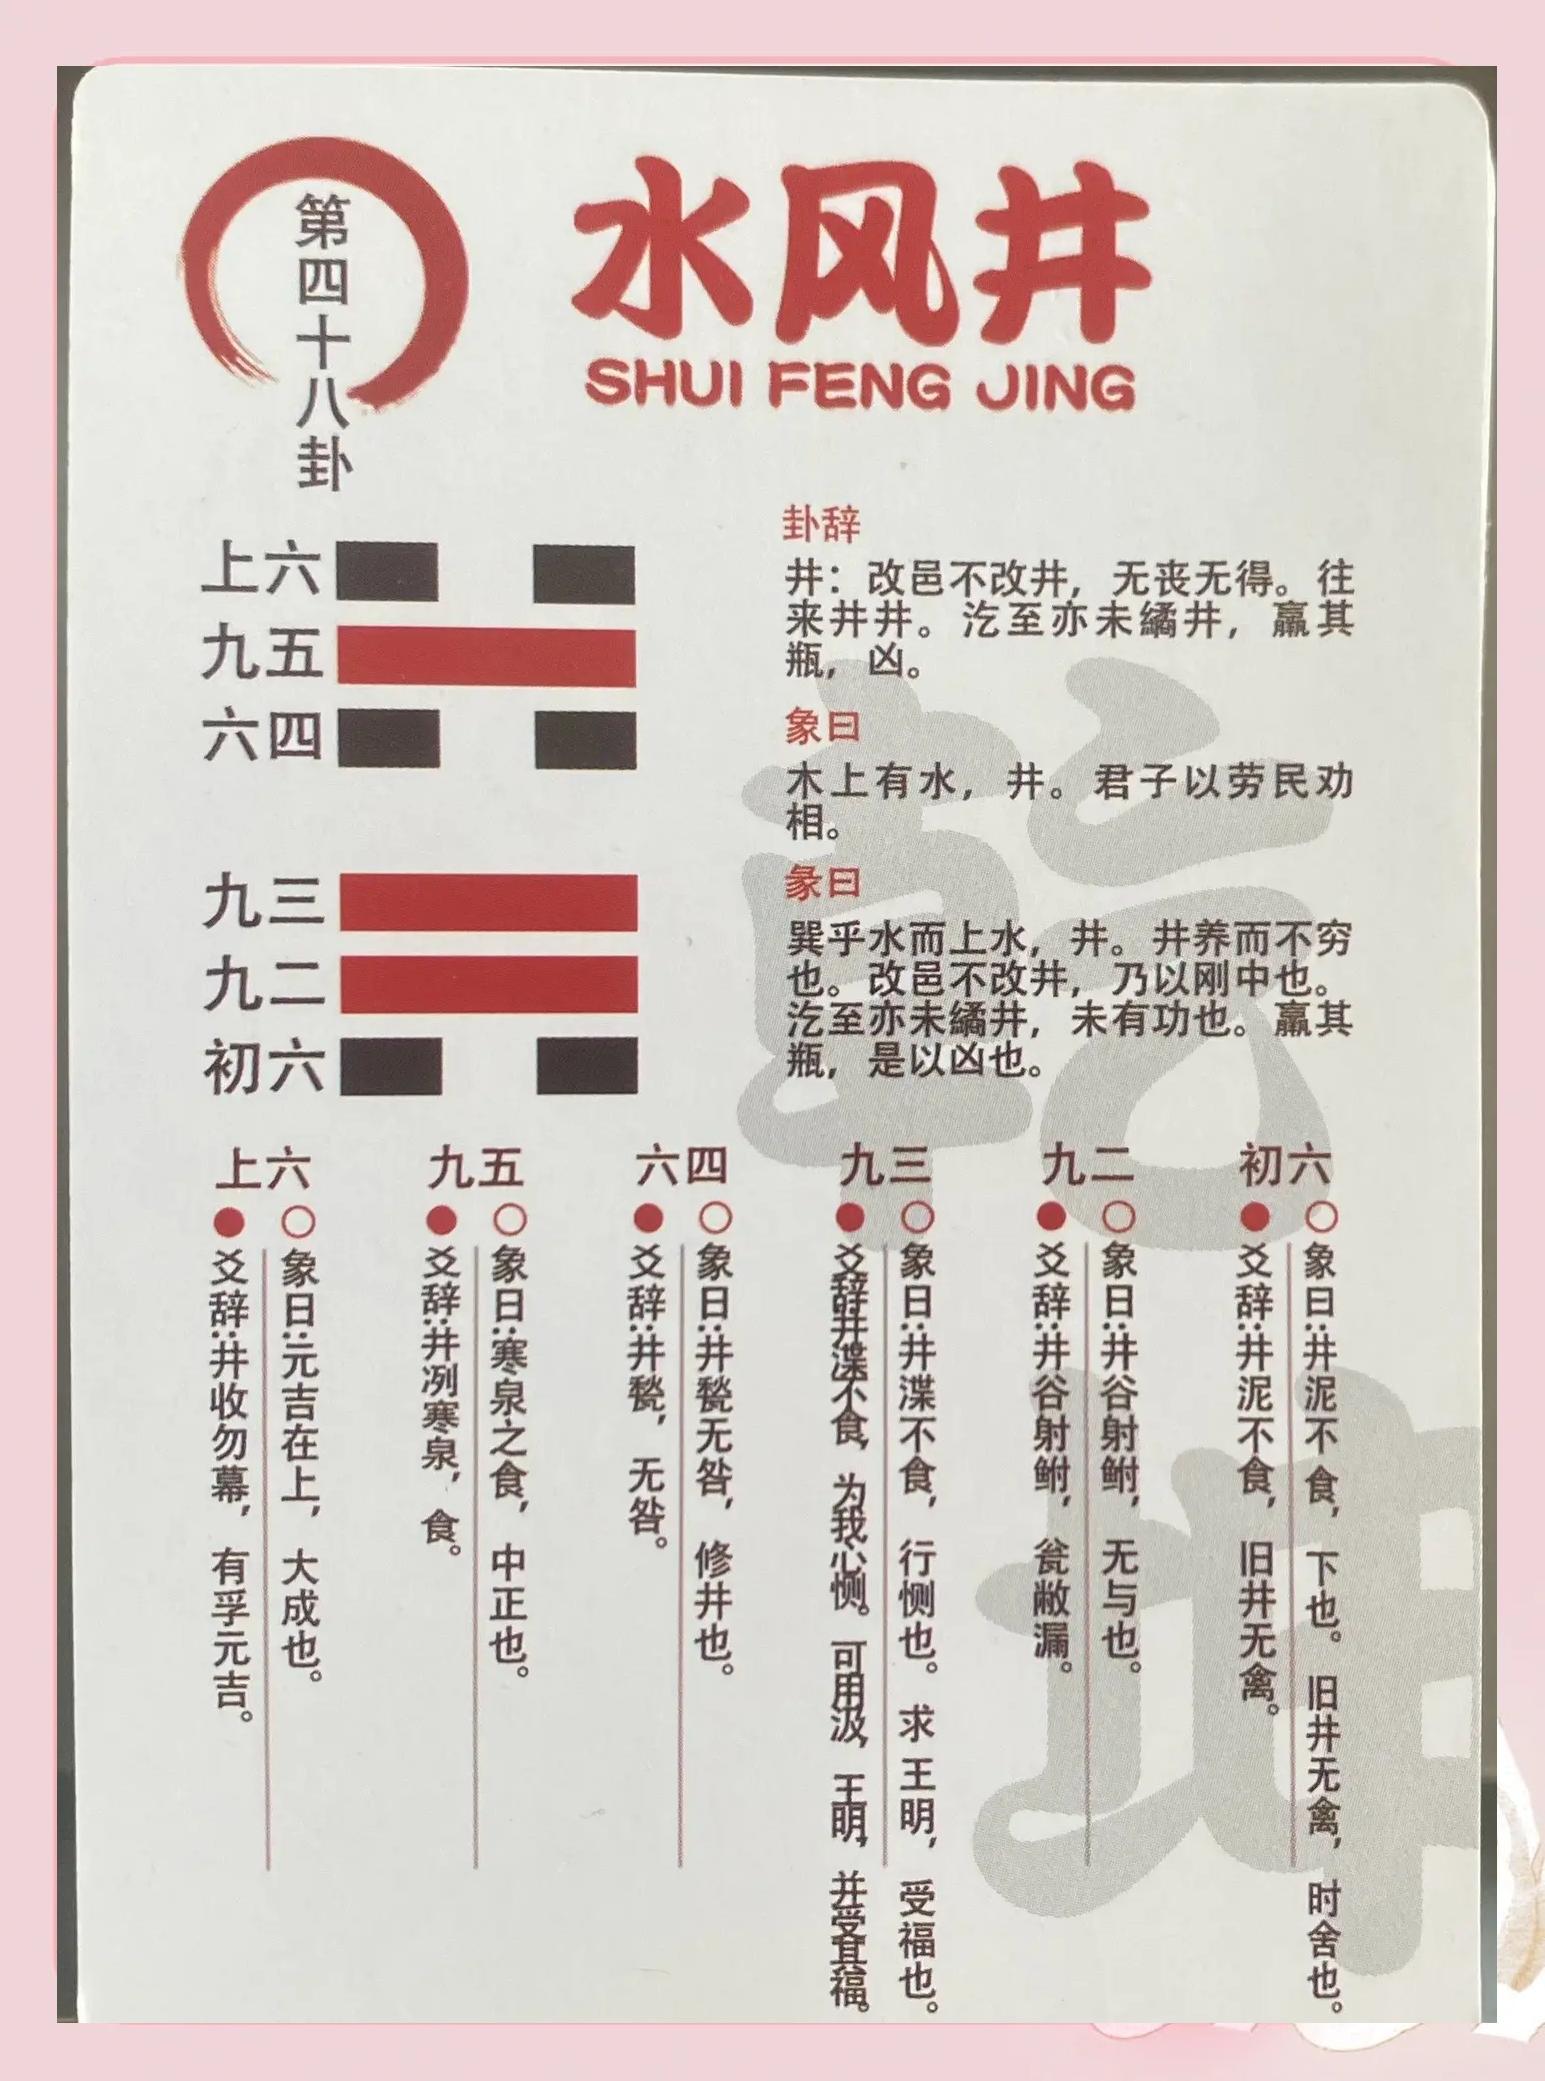 第四十八卦
水风井
SHUI FENG JING
上六
九五
六四
九三
九二
初六
卦辞
井：改邑不改井，无丧无得。往
来井井。汔至亦未繘井，羸其
瓶，凶。
象曰
木上有水，井。君子以劳民劝
相。
彖曰
巽乎水而上水，井。井养而不穷
也。改邑不改井，乃以刚中也。
汔至亦未繘井，未有功也。羸其
瓶，是以凶也。
初六
象曰：井泥不食，下也。旧井无禽，时舍也。
爻辞：井泥不食，旧井无禽。
九二
象曰：井谷射鲋，无与也。
爻辞：井谷射鲋，瓮敝漏。
九三
象曰：井渫不食，行恻也。求王明，受福也。
爻辞井渫不食，为我心恻。可用汲，王明，并受其福。
六四
象曰：井甃无咎，修井也。
爻辞：井甃，无咎。
九五
象曰：寒泉之食，中正也。
爻辞：井冽寒泉，食。
上六
象曰：元吉在上，大成也。
爻辞：井收勿幕，有孚元吉。
乾
坤